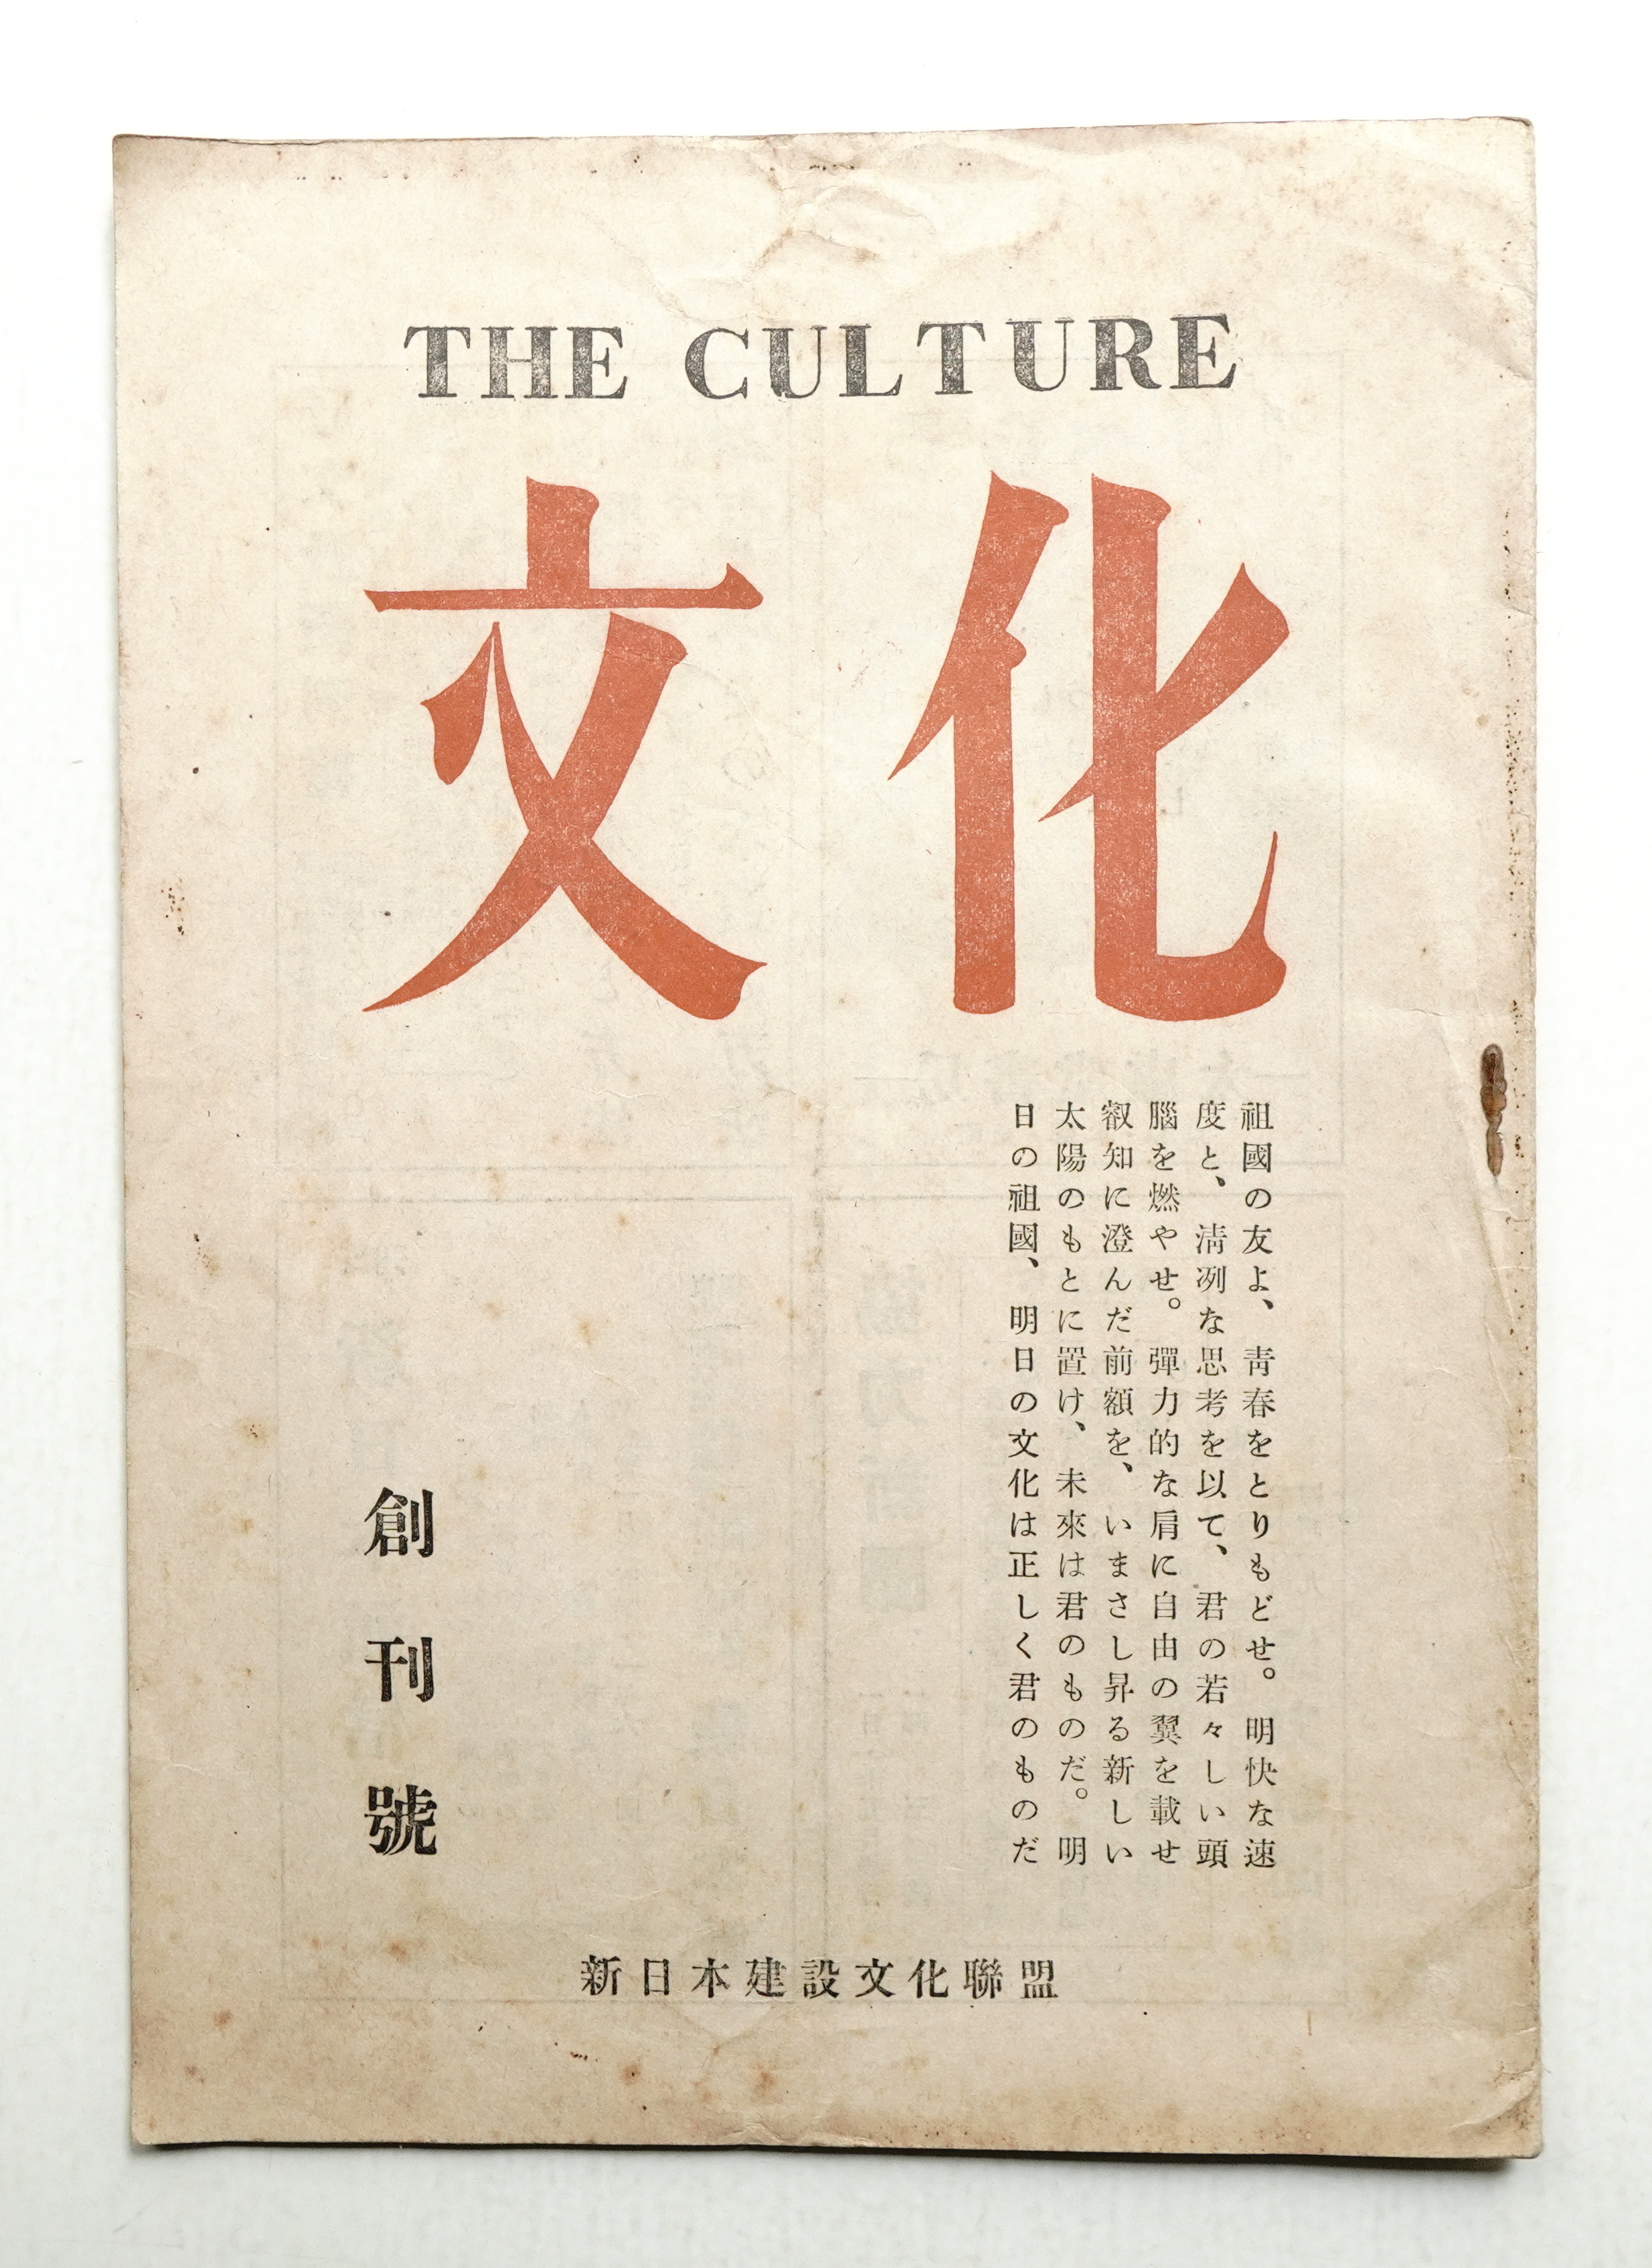 THE CULTURE
文化
祖國の友よ、青春をとりもどせ。明快な速
度と、淸冽な思考を以て、君の若々しい頭
腦を燃やせ。彈力的な肩に自由の翼を載せ
叡知に澄んだ前額を、いまさし昇る新しい
太陽のもとに置け、未來は君のものだ。明
日の祖國、明日の文化は正しく君のものだ
創刊號
新日本建設文化聯盟